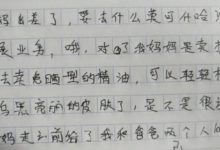 妈出差了，要去什么卖可什哈
展业务，哦，对了我妈妈是卖
去卖色晒型的精油，可以轻轻
乌黑亮丽的皮肤了，是不是很
妈走之前给了我和爸爸两个人